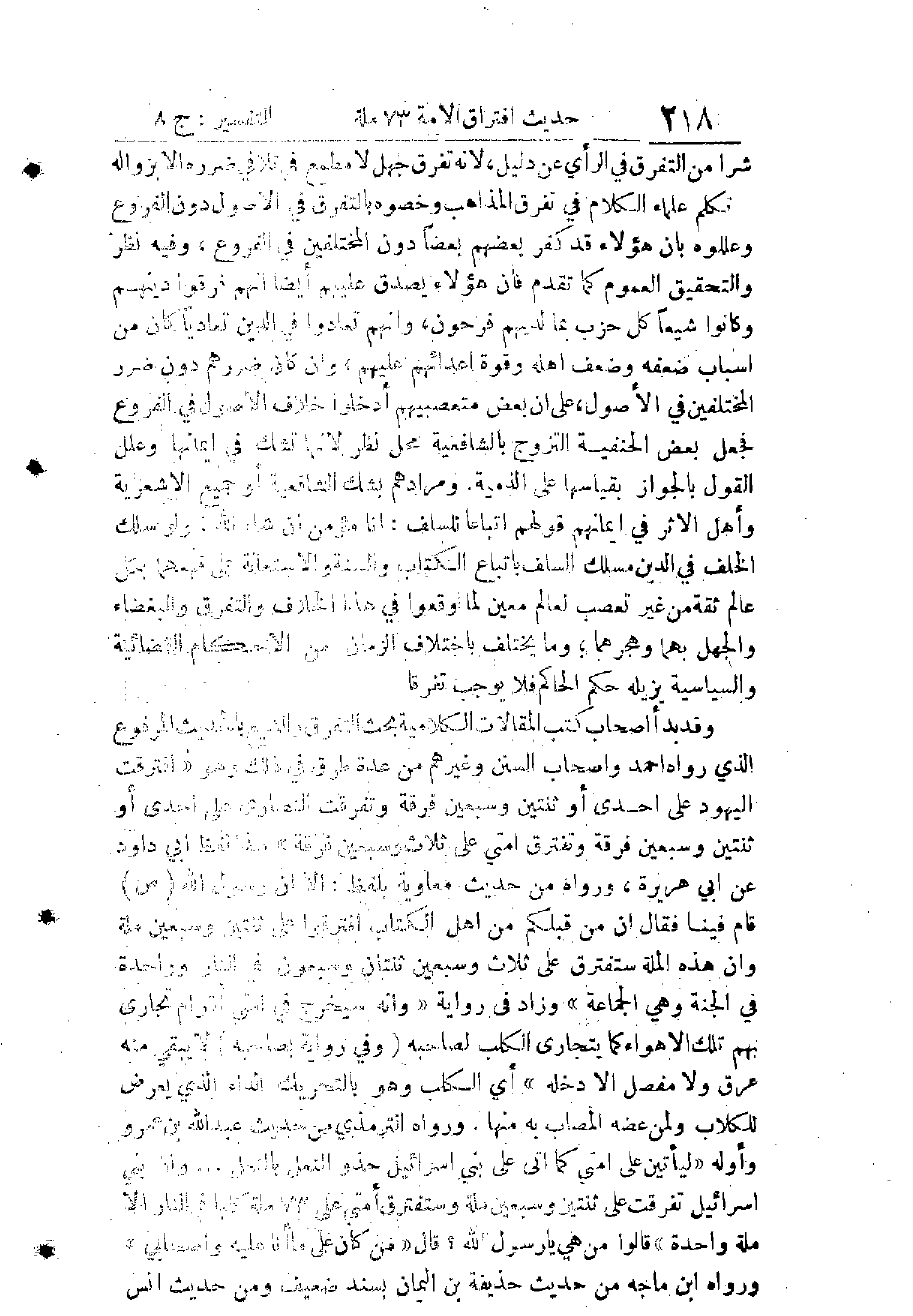 ٢١٨ حديث افتراق الامة ٧٣ ملة التفسير : ج ٨
شرا من التفرق في الرأي عن دليل، لانه تفرق جهل لا مطمع في تلافي ضرره الا بزواله
تكلم علماء الكلام في تفرق المذاهب وخصوه بالتفرق في الاصول دون الفروع
وعللوه بان هؤلاء قد كفر بعضهم بعضاً دون المختلفين في الفروع ، وفيه نظر
والتحقيق العموم كما تقدم فان هؤلاء يصدق عليهم أيضا انهم فرقوا دينهم
وكانوا شيعاً كل حزب بما لديهم فرحون، وانهم تعادوا في الدين تعادياً كان من
اسباب ضعفه وضعف اهله وقوة اعدائهم عليهم ، وان كان ضررهم دون ضرر
المختلفين في الأصول، على ان بعض متعصبيهم أدخلوا خلاف الأصول في الفروع
فجعل بعض الحنفيـة التزوج بالشافعية محل نظر لانها تشك في ايمانها وعلل
القول بالجواز بقياسها على الذمية. ومرادهم بشك الشافعية أو جميع الاشعرية
وأهل الاثر في ايمانهم قولهم اتباعاً للسلف : انا مؤمن ان شاء الله . ولو سلك
الخلف في الدين مسلك السلف باتباع الكتاب والسنة والاستعانة على فهمهما بكل
عالم ثقة من غير تعصب لعالم معين لما وقعوا في هذا الخلاف والتفرق والبغضاء
والجهل بهما وهجرهما ، وما يختلف باختلاف الزمان من الاحكام القضائية
والسياسية يزيله حكم الحاكم فلا يوجب تفرقا
وقد بدأ أصحاب كتب المقالات الكلامية بحث التفرق والشيع بالحديث المرفوع
الذي رواه احمد واصحاب السنن وغيرهم من عدة طرق في ذلك وهو « افترقت
اليهود على احـدى أو ثنتين وسبعين فرقة وتفرقت النصارى على احدى أو
ثنتين وسبعين فرقة وتفترق امتي على ثلاث وسبعين فرقة » هذا لفظ ابي داود
عن ابي هريرة ، ورواه من حديث معاوية بلفظ : الا ان رسول الله ( ص )
قام فينـا فقال ان من قبلكم من اهل الكتاب افترقوا على ثنتين وسبعين ملة
وان هذه الملة ستفترق على ثلاث وسبعين ثنتان وسبعون في النار وواحدة
في الجنة وهي الجماعة » وزاد في رواية « وانه سيخرج في امتي أقوام تجارى
بهم تلك الاهواء كما يتجارى الكلب لصاحبه ( وفي رواية بصاحبه ) لا يبقى منه
عرق ولا مفصل الا دخله » أي الكلب وهو بالتحريك الداء الذي يعرض
للكلاب ولمن عضه المصاب به منها . ورواه الترمذي من حديث عبدالله بن عمرو
وأوله « ليأتين على امتي كما اتى على بني اسرائيل حذو النعل بالنعل ... وان بني
اسرائيل تفرقت على ثنتين وسبعين ملة وستفترق أمتي على ٧٣ ملة كلها في النار الا
ملة واحدة » قالوا من هي يارسول الله ؟ قال « من كان على ما أنا عليه واصحابي »
ورواه ابن ماجه من حديث حذيفة بن اليمان بسند ضعيف ومن حديث انس